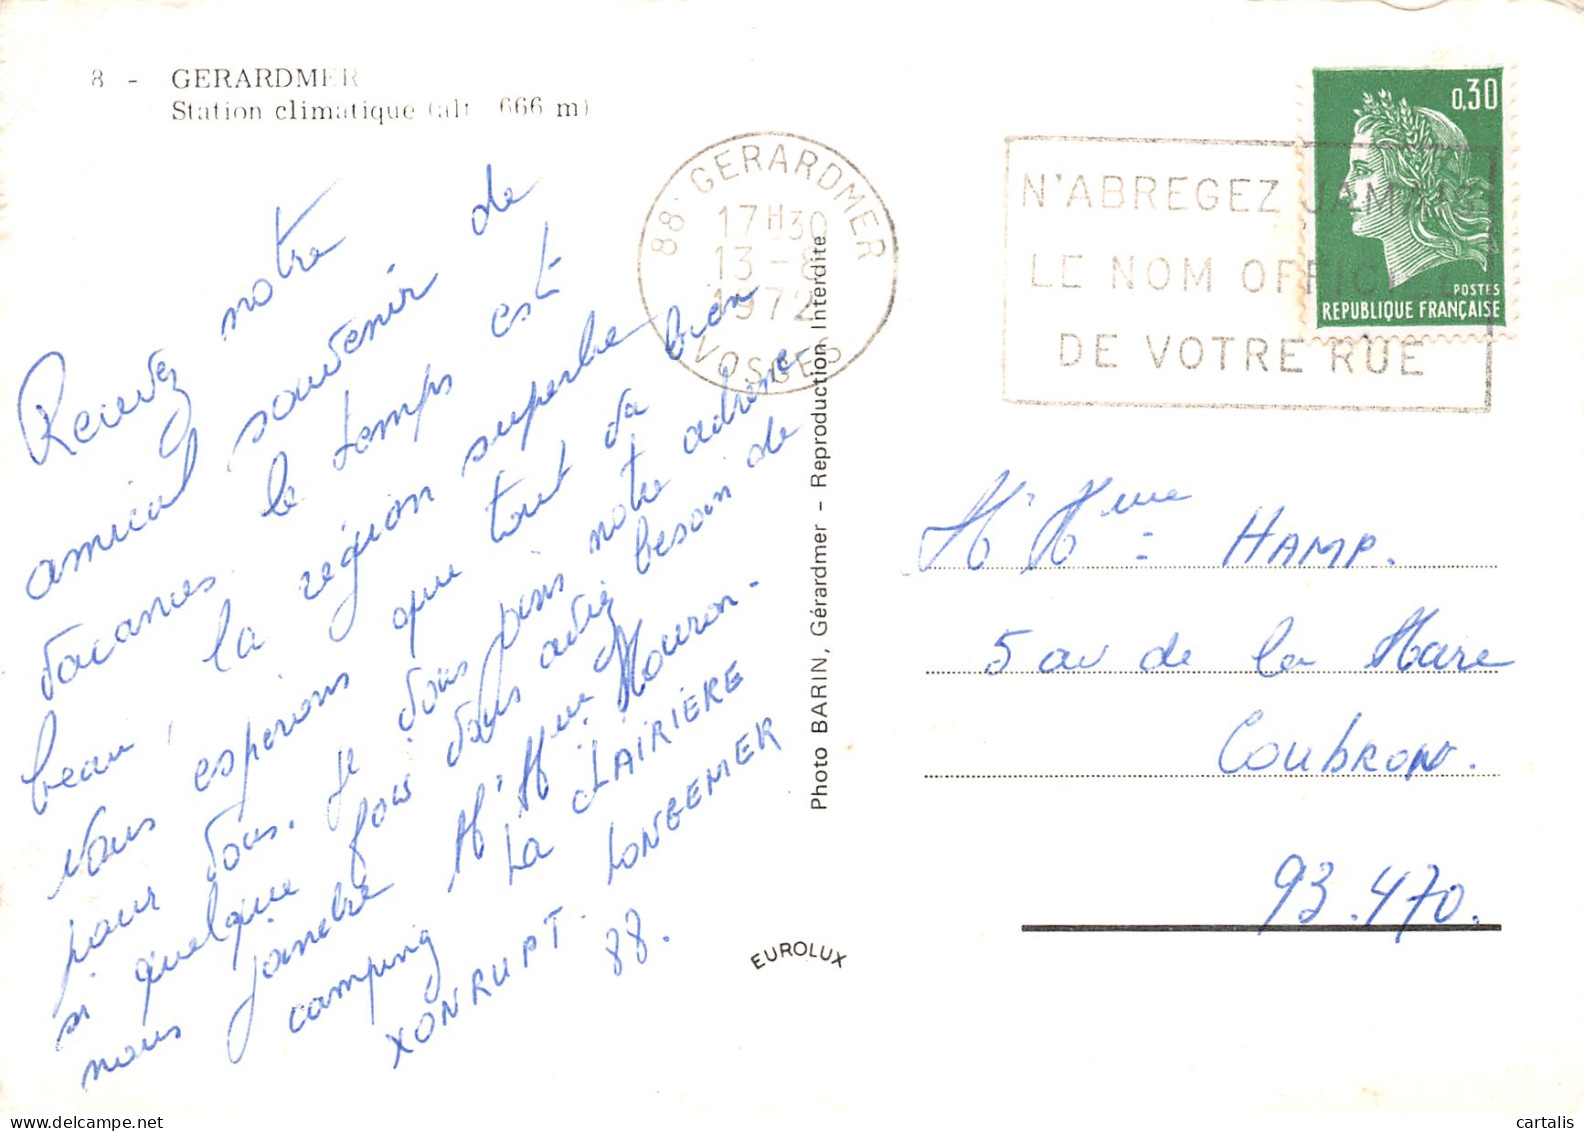 8 - GERARDMER
Station climatique (alt. 666 m)
Recevez notre
amical souvenir de
vacances. le temps est
beau, la région superbe
Nous espérons que tout va bien
pour vous. Je vous mis notre adresse
si quelque fois vous aviez besoin de
nous joindre Mr Mme Mouron -
camping LA CLAIRIÈRE
XONRUPT. LONGEMER
88.
88 GERARDMER
17H30
13-8
1972
VOSGES
N'ABREGEZ JAMAIS
LE NOM OFFICIEL
DE VOTRE RUE
0,30
POSTES
REPUBLIQUE FRANÇAISE
Photo BARIN, Gérardmer – Reproduction Interdite
EUROLUX
Mr Mme = HAMP.
5 av de la Mare
COUBRON.
93.470.
cartalis
www.delcampe.net